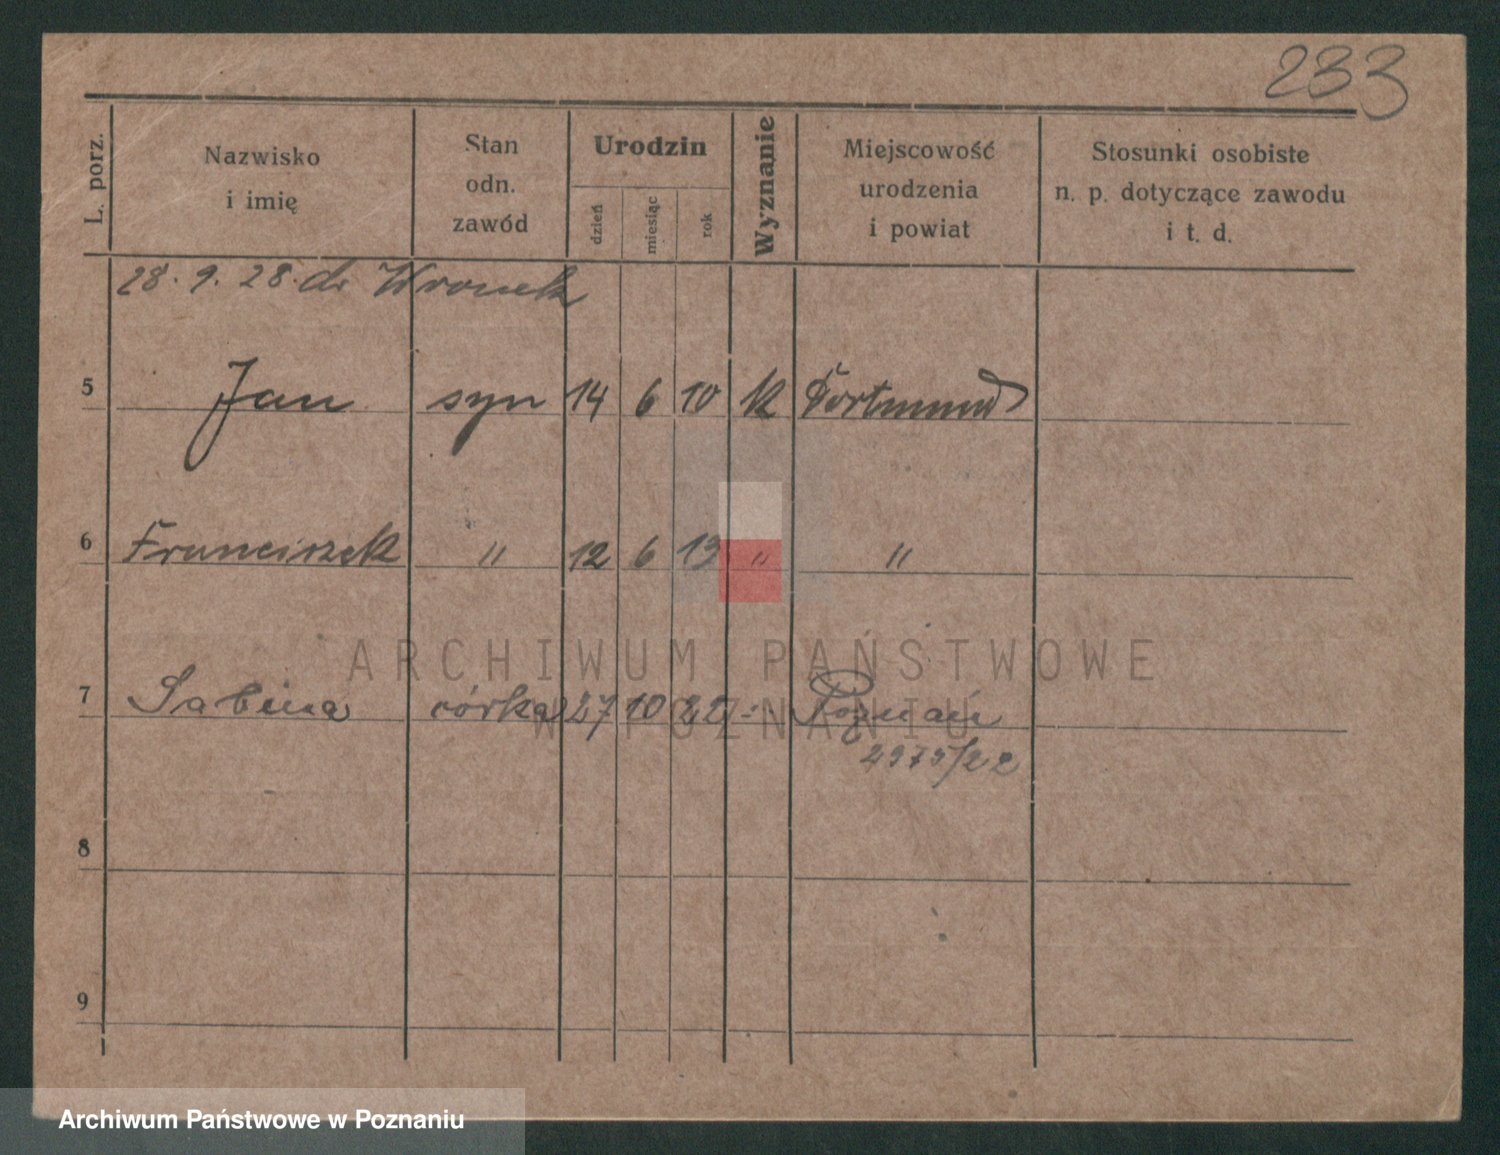 233
L. porz.
Nazwisko
i imię
Stan
odn.
zawód
Urodzin
dzień
miesiąc
rok
Wyznanie
Miejscowość
urodzenia
i powiat
Stosunki osobiste
n. p. dotyczące zawodu
i t. d.
28. 9. 28. do Wronek
5 Jan syn 14 6 10 k Dortmund
6 Franciszek " 12 6 13 " "
7 Sabina córka 27 10 22 -"- Poznań
2975/22
8
9
ARCHIWUM PAŃSTWOWE
W POZNANIU
Archiwum Państwowe w Poznaniu